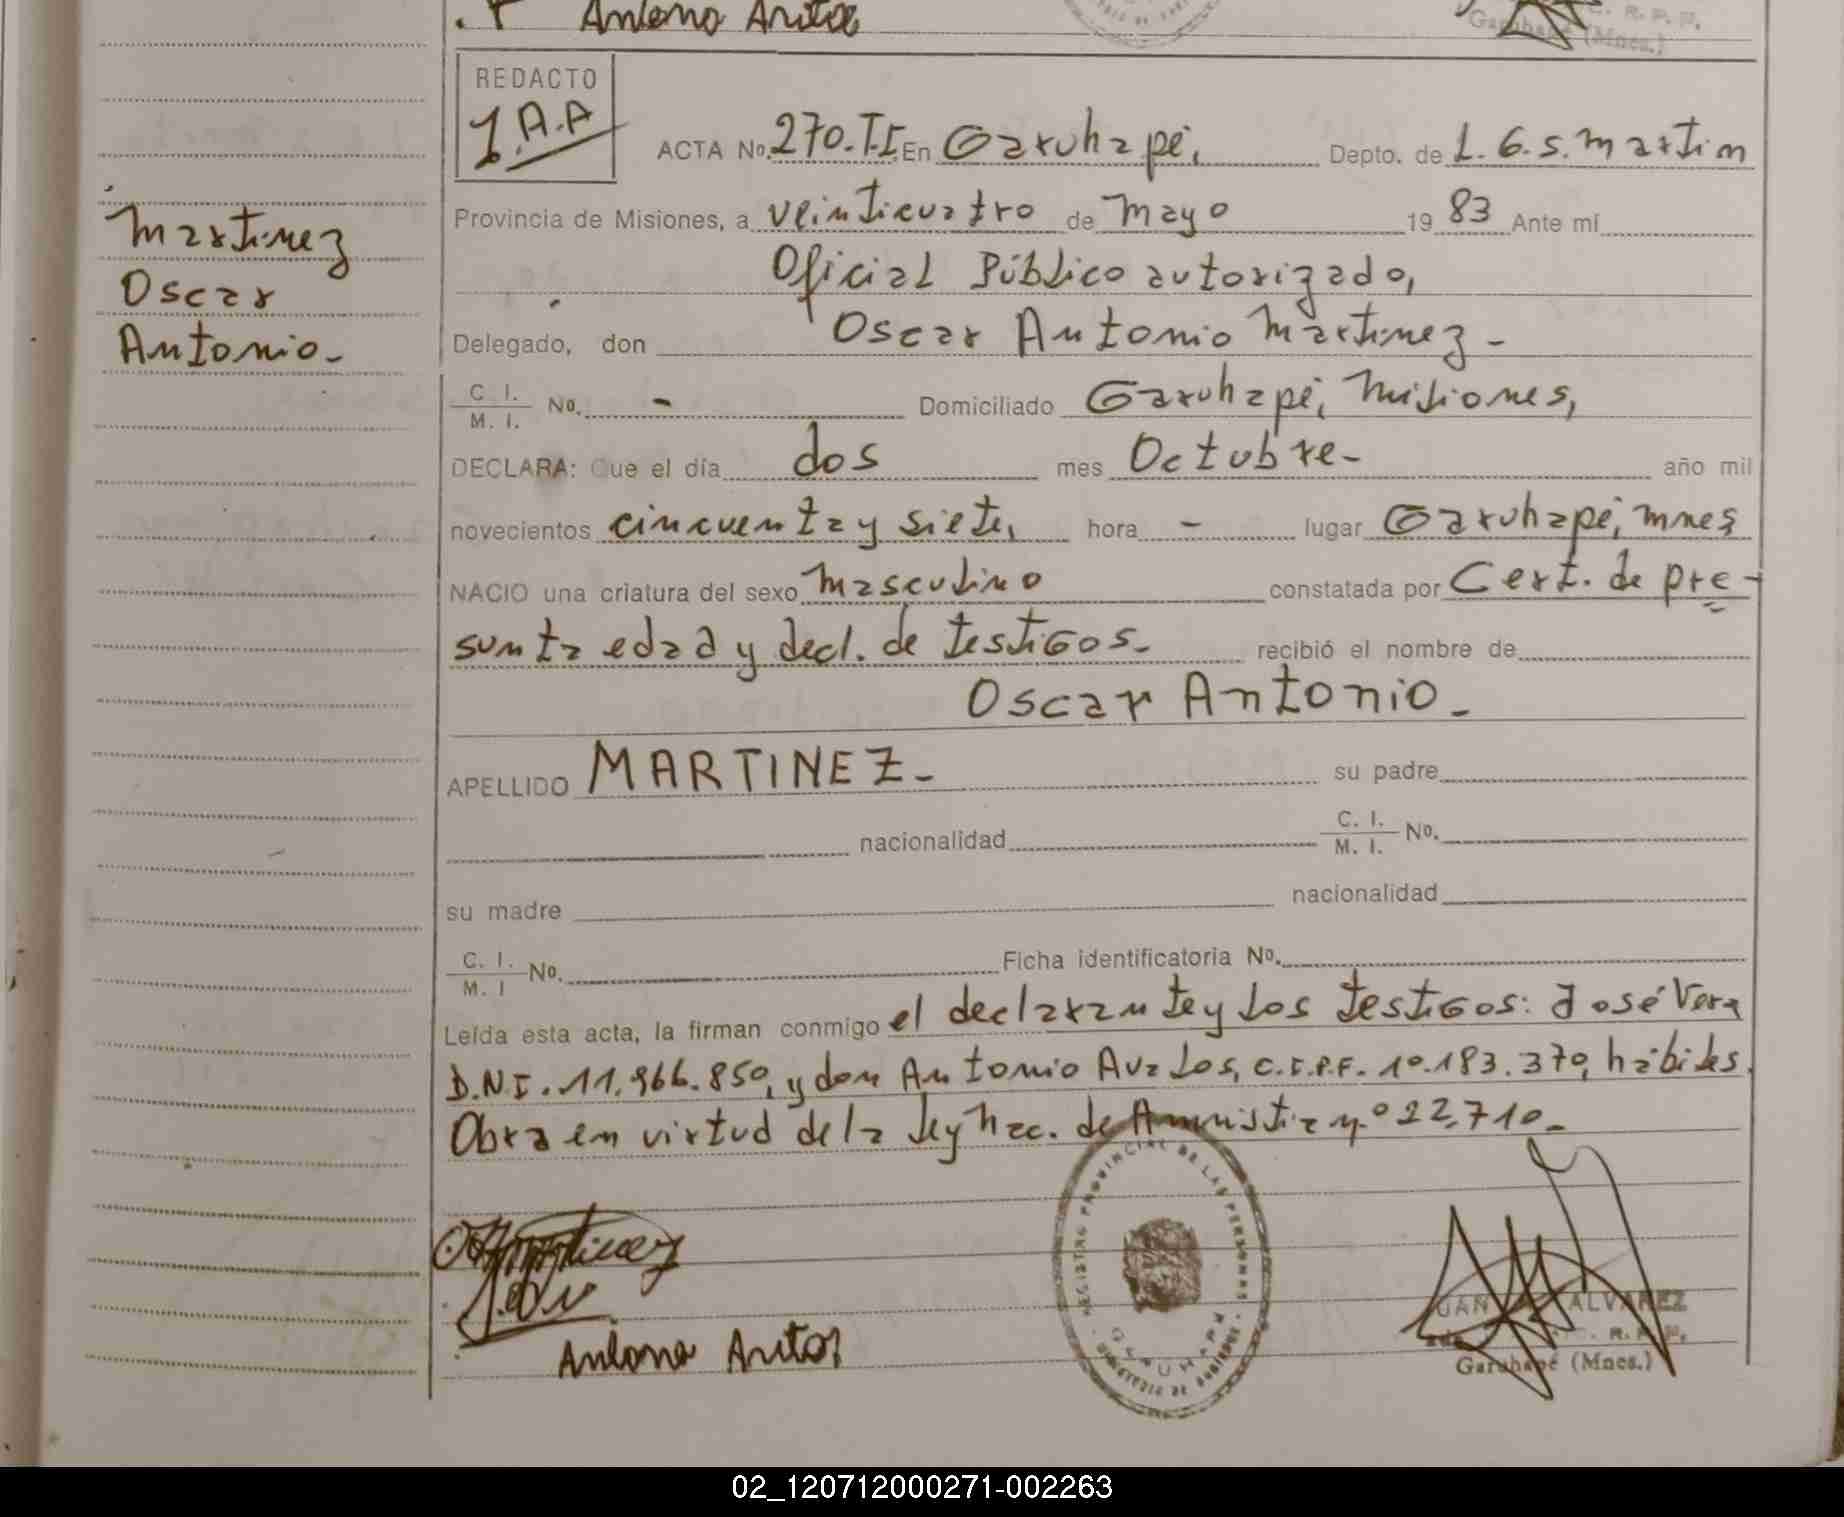 Antonio
Garuhapé (Mnes.)
REDACTO
J.A.A
ACTA No. 270.T.I. En Garuhapé, Depto. de L.G.S.Martin
Provincia de Misiones, a veinticuatro de Mayo 19 83 Ante mí
Oficial Público autorizado,
Delegado, don Oscar Antonio Martinez -
C. I.
M. I.
No. - Domiciliado Garuhapé, Misiones,
DECLARA: Que el día dos mes Octubre - año mil
novecientos cincuenta y siete, hora - lugar Garuhapé, Mnes,
NACIO una criatura del sexo Masculino constatada por Cert. de pre-
sunta edad y decl. de testigos. recibió el nombre de
Oscar Antonio.
APELLIDO MARTINEZ - su padre
nacionalidad C. I.
M. I. No.
su madre nacionalidad
C. I.
M. I No. Ficha identificatoria No.
Leída esta acta, la firman conmigo el declarante y los testigos: José Vera
D.N.I. 11.966.850, y don Antonio Avalos, C.I.P.F. 10.183.370, hábiles.
Obra en virtud de la ley Nac. de Amnistia n.º 22.710.
Martinez
Oscar
Antonio.
REGISTRO PROVINCIAL DE LAS PERSONAS
GARUHAPE
ALVAREZ
Garuhapé (Mnes.)
02_120712000271-002263